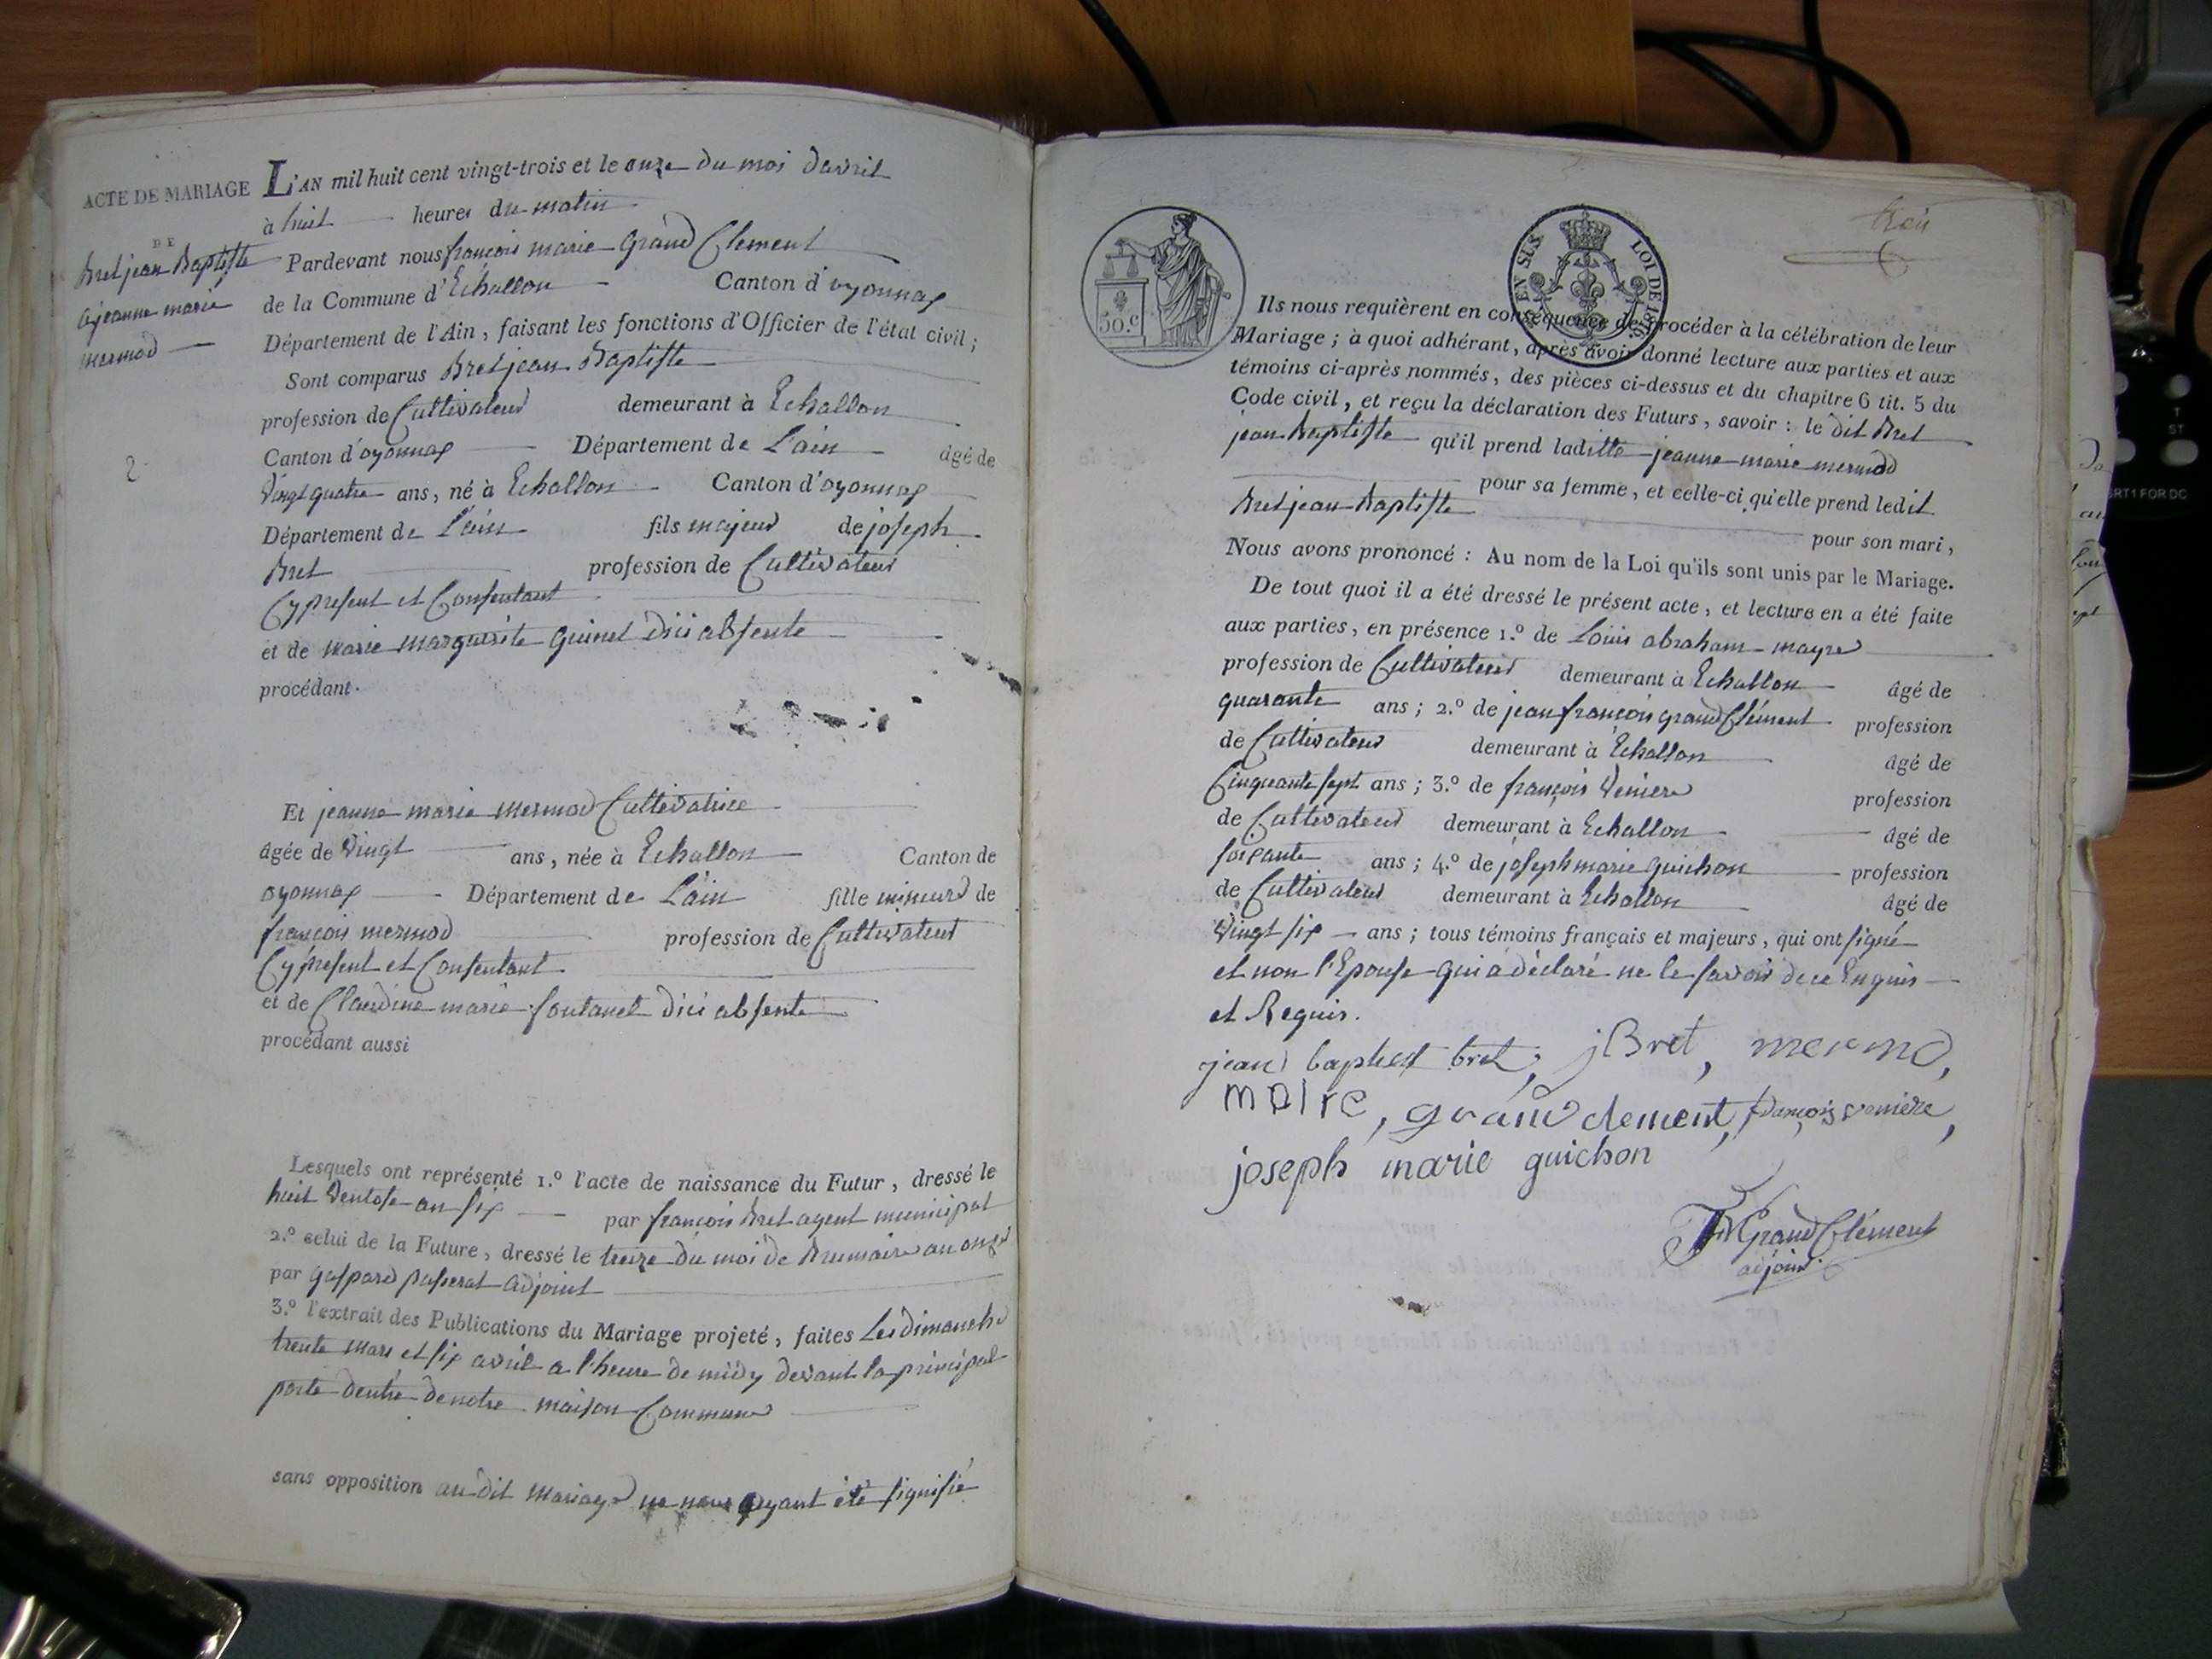 ACTE DE MARIAGE
DE
Bret jean Baptiste
a jeanne marie
mermod
2
L'AN mil huit cent vingt-trois et le onze du moi davril
à huit heures du matin
Pardevant nous françois marie Grand Clement
de la Commune d'Echallon Canton d'oyonnax
Département de l'Ain, faisant les fonctions d'Officier de l'état civil;
Sont comparus Bret jean Baptiste
profession de Cultivateur demeurant à Echallon
Canton d'oyonnax Département de L'ain âgé de
Vingt quatre ans, né à Echallon Canton d'oyonnax
Département de L'ain fils majeur de joseph
Bret profession de Cultivateur
Cy present et Consentant
et de marie marguerite guinet d'ici absente
procédant
Et jeanne marie mermod Cultivatrice
âgée de Vingt ans, née à Echallon Canton de
oyonnax Département de L'ain fille mineure de
françois mermod profession de Cultivateur
Cy present et Consentant
et de Claudine marie fontanet d'ici absente
procédant aussi
Lesquels ont représenté 1.º l'acte de naissance du Futur, dressé le
huit Ventose an six par françois Bret agent municipal
2.º celui de la Future, dressé le treize du moi de Brumaire an onze
par gaspard passerat adjoint
3.º l'extrait des Publications du Mariage projeté, faites Les dimanche
trente mars et six avril a l'heure de midy devant la principal
porte dentré de notre maison Commune
sans opposition au dit mariage ne nous ayant été signifié
50.c
EN SUS
LOI DE 1816.
Ils nous requièrent en conséquence de procéder à la célébration de leur
Mariage; à quoi adhérant, après avoir donné lecture aux parties et aux
témoins ci-après nommés, des pièces ci-dessus et du chapitre 6 tit. 5 du
Code civil, et reçu la déclaration des Futurs, savoir: le dit Bret
jean Baptiste qu'il prend laditte jeanne marie mermod
pour sa femme, et celle-ci qu'elle prend ledit
Bret jean Baptiste
pour son mari,
Nous avons prononcé: Au nom de la Loi qu'ils sont unis par le Mariage.
De tout quoi il a été dressé le présent acte, et lecture en a été faite
aux parties, en présence 1.º de Louis abraham mayre
profession de Cultivateur demeurant à Echallon âgé de
quarante ans; 2.º de jean françois grand Clément profession
de Cultivateur demeurant à Echallon âgé de
Cinquante sept ans; 3.º de françois Veniere profession
de Cultivateur demeurant à Echallon âgé de
soixante ans; 4.º de joseph marie guichon profession
de Cultivateur demeurant à Echallon âgé de
Vingt six ans; tous témoins français et majeurs, qui ont signé
et non l'Epouse qui a déclaré ne le savoir de ce Enquis
et Requis.
jean baptist bret, jBret, mermo,
maire, grand clement, françois veniere,
joseph marie guichon
FM Grand Clément
adjoint